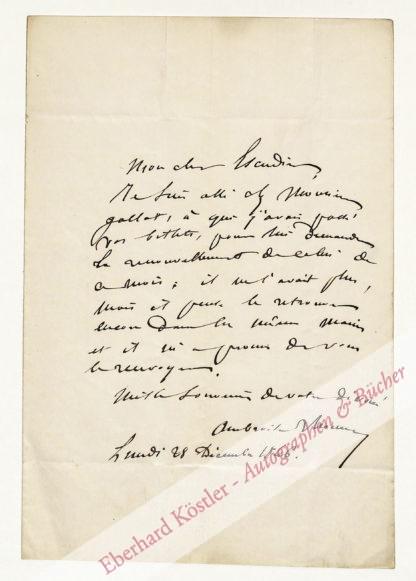 Mon cher Escudier,
Je suis allé chez Monsieur
gallet, à qui j'avais passé
vos billets, pour lui demander
le renouvellement de celui de
ce mois; il ne l'avait plus,
mais il peut le retrouver
encore dans les mêmes mains
et il m'a promis de vous
le renvoyer.
Mille souvenirs de votre dévoué
Ambroise Thomas
Lundi 28 Décembre
Eberhard Köstler - Autographen & Bücher